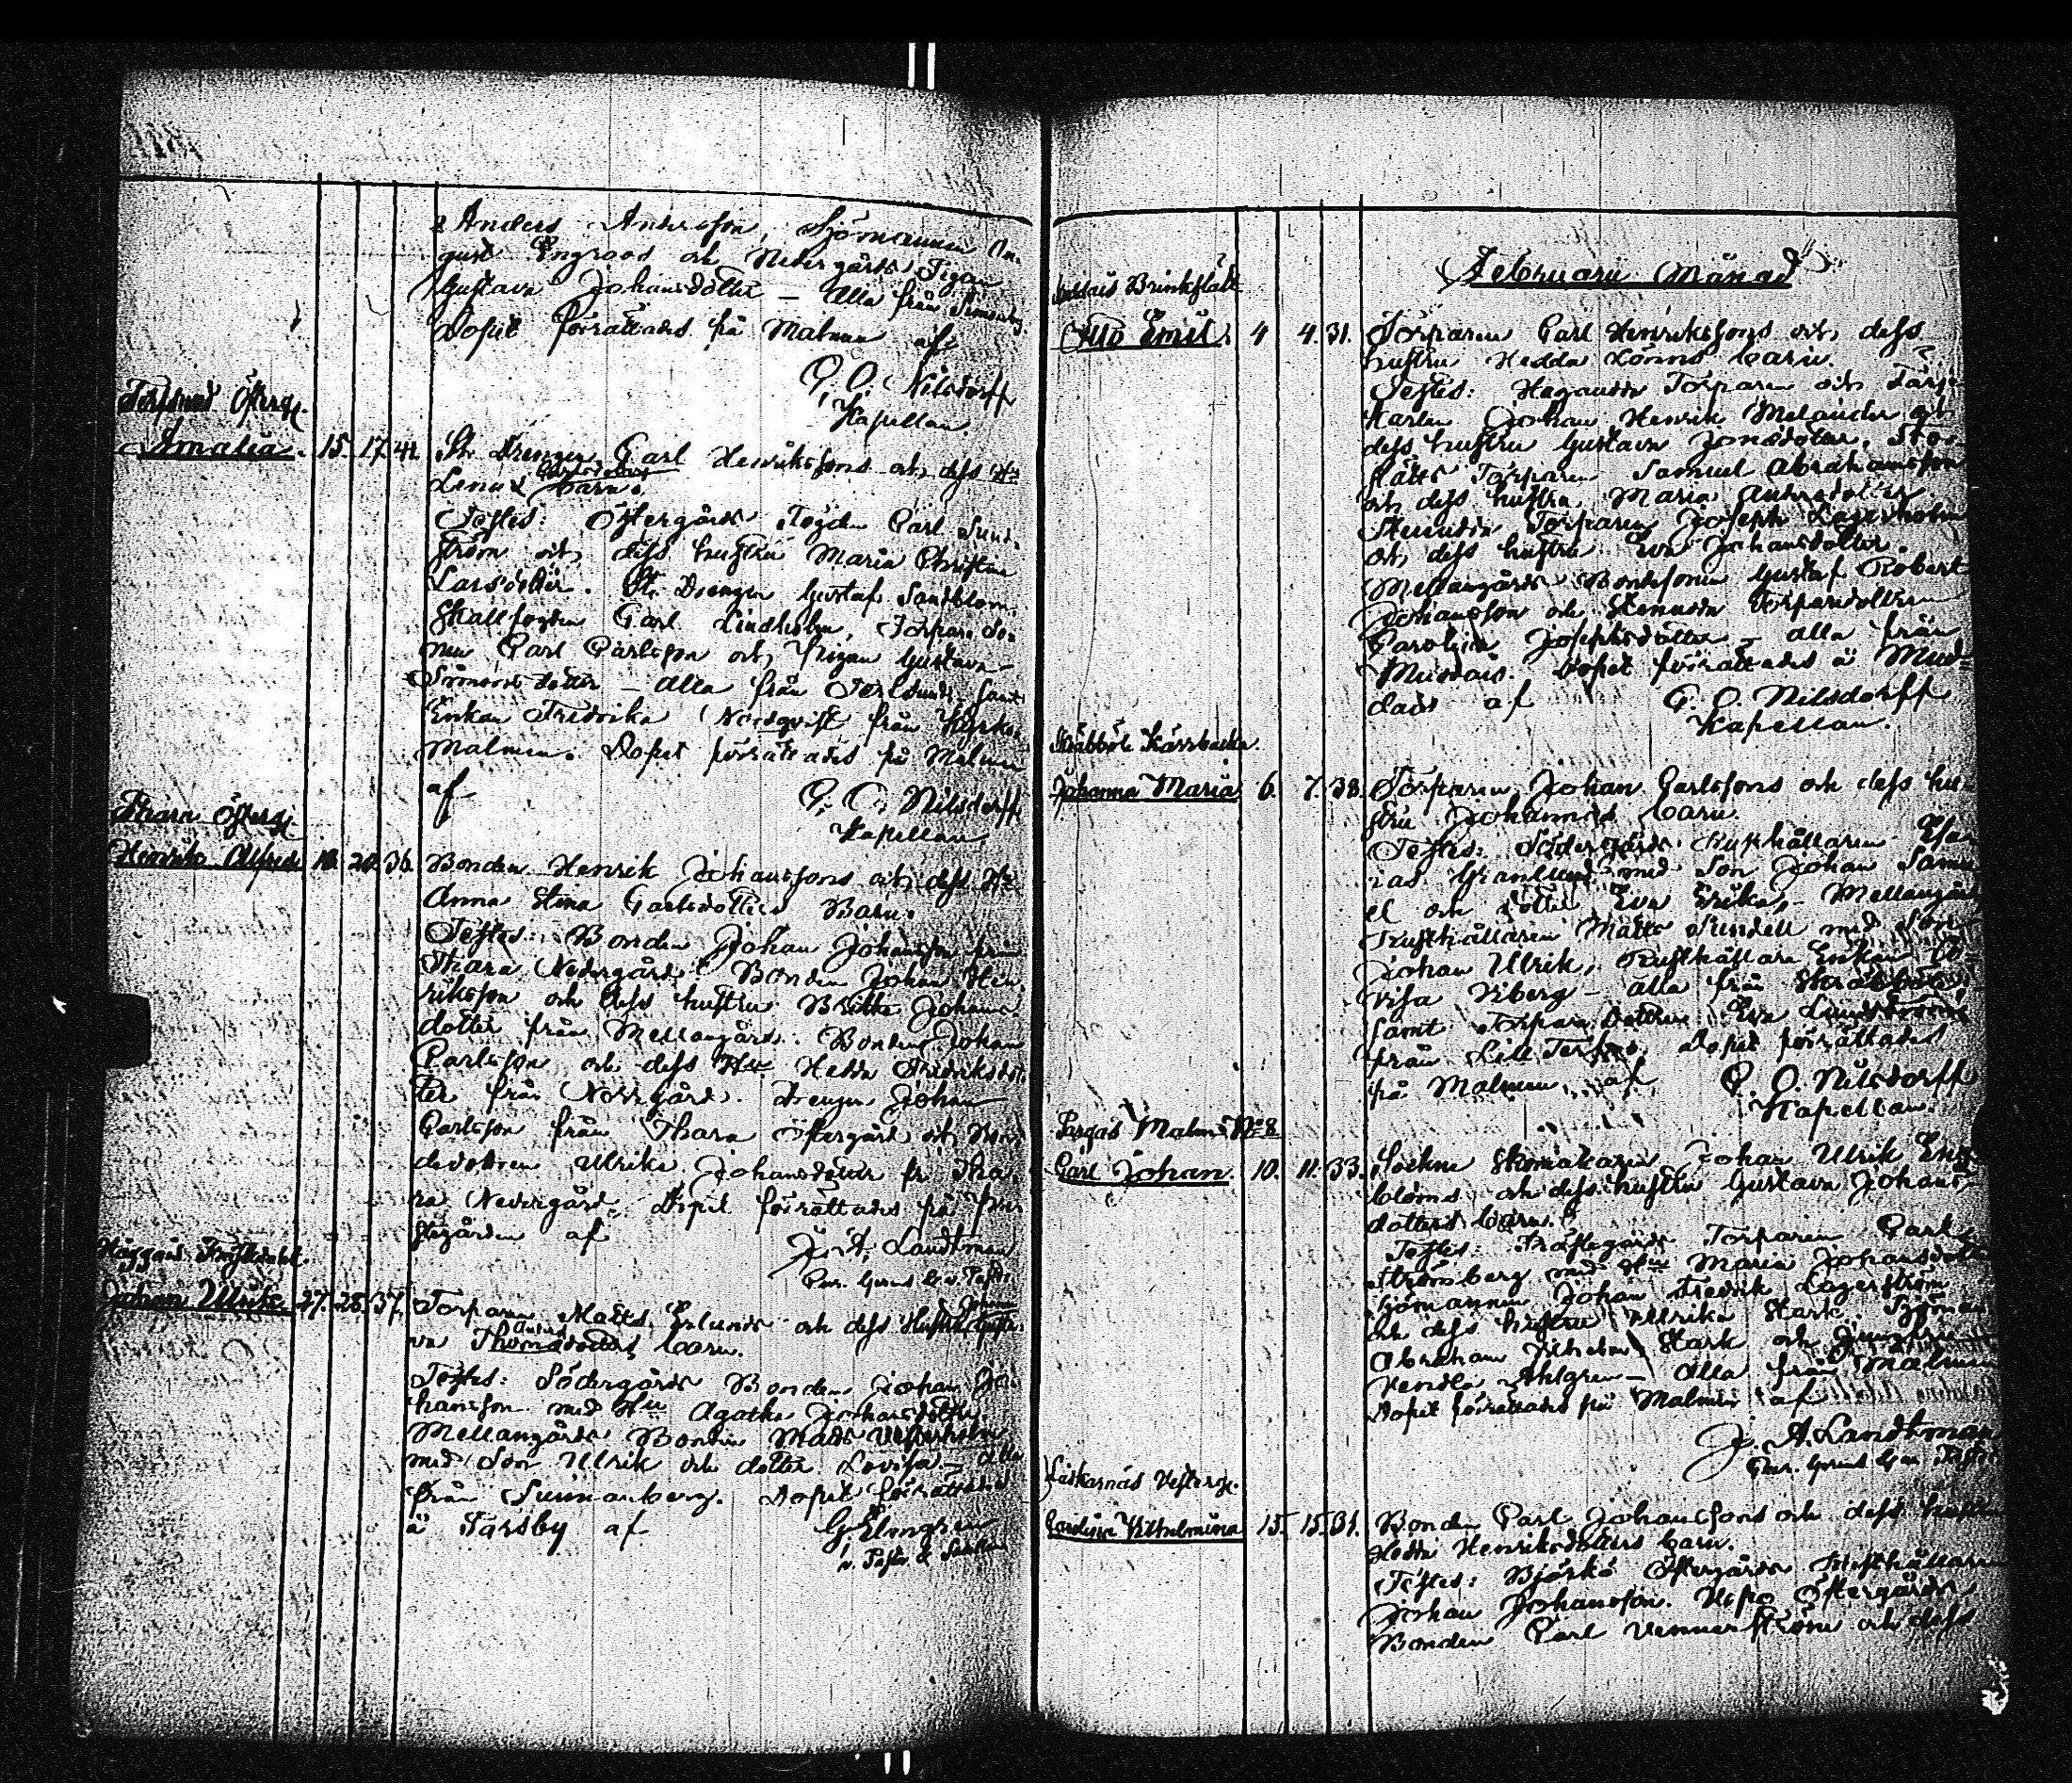 Anders Andersson, Sjömannen Au-
gust Engroos och Nedergårds Pigan
Gustava Johansdotter – Alla från Simonby.
Dopet förrättades på Malmen af
G. O. Nilsdorff
Kapellan.
Terfsund Östergd.
Amalia. 15. 17. 41. St. Drengen Carl Henrikssons och dess Hu
Lena Carlsdotters barn.
Testes: Östergårds Fogden Carl Sund-
ström och dess hustru Maria Christina
Larsdotter. St. Drengen Gustaf Sandblom.
Stallfogden Carl Lindholm, Torpare So-
nen Carl Carlsson och Pigan Gustava
Simonsdotter – alla från Terfsund, samt
Enkan Fredrika Nordqvist från Kyrko-
Malmen. Dopet förrättades på Malmen
af G. O. Nilsdorff
Kapellan
Thara Östergd.
Henrik Alfred 18. 20. 36. Bonden Henrik Johanssons och dess Hu
Anna Stina Carlsdotters Barn.
Testes: Bonden Johan Johansson från
Thara Nedergård. Bonden Johan Hen-
riksson och dess hustru Britta Johans-
dotter från Mellangård. Bonden Johan
Carlsson och dess Hu Hedda Fredriksdot-
ter från Norrgård. Drengen Johan
Carlsson från Thara Östergård och Bon-
dedottren Ulrika Johansdotter fr. Tha-
ra Nedergård. Dopet förrättades på Pre-
stegården af J. A. Landtman
Häggnäs
Johan Ulrik 27. 28. 37. Torparen Matts Erlunds och dess Hustru Gusta-
va Thomasdotters barn.
Testes: Södergårds Bonden Johan Jo-
hansson med Hu Agatha Johansdotter.
Mellangårds Bonden Mats Vesterholm
med Son Ulrik och dotter Lovisa – alla
från Simonberg. Dopet förrättades
å Tarsby af G Elmgren
v. Pastor
Februarii Månad
Muddais Brinkslätt
Otto Emil. 4 4. 31. Torparen Carl Henrikssons och dess
hustru Hedda Lönns barn.
Testes: Haganda Torparen och Färje
Karlen Johan Henrik Melander och
dess hustru Gustava Jonsdotter. Stor-
slätts Torparen Samuel Abrahamsson
och dess hustru Maria Andersdotter
Stenudda Torparen Joseph Lagerholm
och dess hustru Eva Johansdotter.
Mellangårds Bondesonen Gustaf Robert
Johansson och Stenudda Torparedottren
Carolina Josephsdotter – alla från
Muddais. Dopet förrättades å Mud-
dais af G. O. Nilsdorff
Kapellan.
Skräbböle Kärrbacka.
Johanna Maria 6. 7. 38. Torparen Johan Carlssons och dess hu-
stru Johannas barn.
Testes: Södergårds Rusthållaren Esa-
ias Granlund med Son Johan Samu-
el och dotter Eva Erika, – Mellangård
Rusthållaren Matts Sundell med Son
Johan Ulrik, Rusthållare Enkan Lo-
visa Viberg – alla från Skräbböle
samt Torpare Dottren Eva Lundström
från Lill Terfso. Dopet förrättades
på Malmen af G. O. Nilsdorff
Kapellan.
Pargas Malm No 8
Carl Johan. 10. 11. 33. Sockne Skomakaren Johan Ulrik Eng-
bloms och dess hustru Gustava Johans-
dotters barn.
Testes: Prestegårds Torparen Carl
Strömberg med Hu Maria Johansdotter
Sjömannen Johan Fredrik Lagerström
och dess hustru Ulrika Stark. Sjöman
Abraham Wilhelm Stark och Jungfru
Vendla Ahlgren – Alla från Malmen
Dopet förrättades på Malmen af
J. A. Landtman
Laskarnäs Vestergd.
Carolina Vilhelmina 15. 15. 31. Bonden Carl Johanssons och dess hustru
Hedda Henriksdotters barn.
Testes: Björkö Östergårds Rusthållaren
Johan Johansson. Vepo Östergårds
Bonden Carl Vennerström och dess